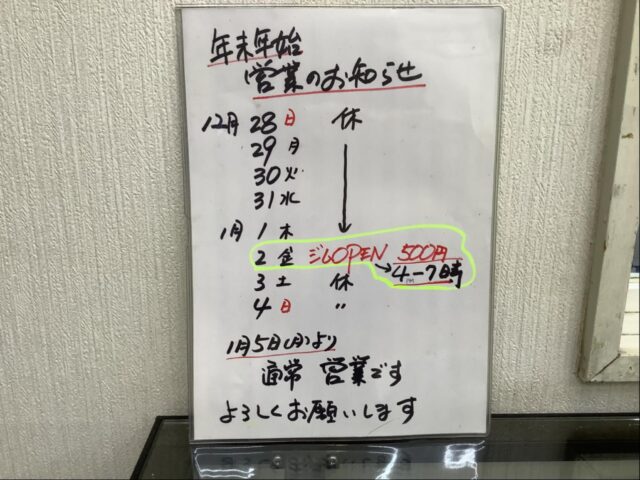 年末年始
営業のお知らせ
12月 28 日 休
29 月
30 火
31 水
1月 1 木
2 金 ジムOPEN 500円
→4-7時
PM
3 土 休
4 日 〃
1月5日(月)より
通常 営業です
よろしくお願いします